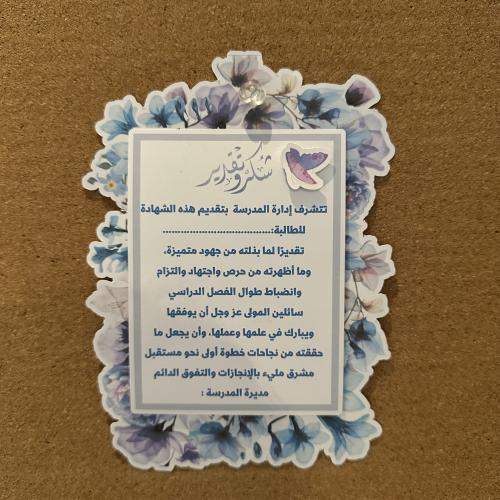 شكر وتقدير
تتشرف إدارة المدرسة بتقديم هذه الشهادة
للطالبة:......................................
تقديرًا لما بذلته من جهود متميزة،
وما أظهرته من حرص واجتهاد والتزام
وانضباط طوال الفصل الدراسي
سائلين المولى عز وجل أن يوفقها
ويبارك في علمها وعملها، وأن يجعل ما
حققته من نجاحات خطوة أولى نحو مستقبل
مشرق مليء بالإنجازات والتفوق الدائم
مديرة المدرسة :